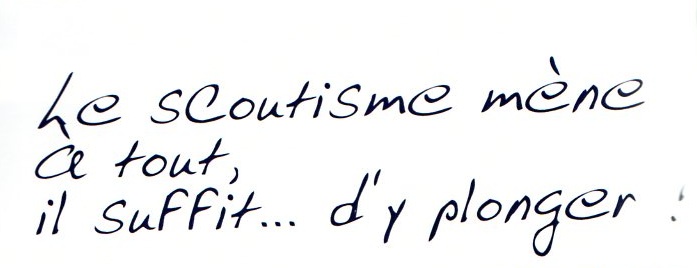 Le scoutisme mène
à tout,
il suffit... d'y plonger !